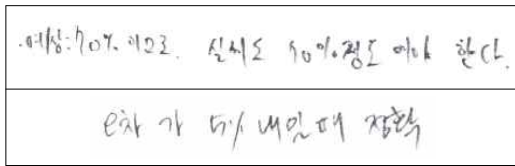 예상:70% 이므로. 실제도 70%정도 여야 한다.
오차가 5% 내일때 정확